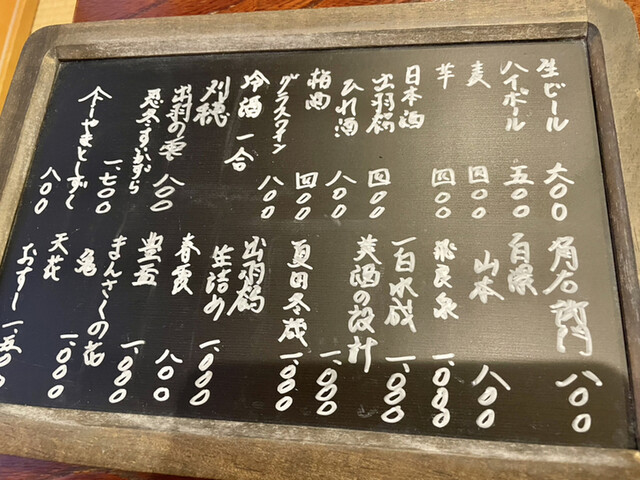 生ビール 六〇〇
ハイボール 五〇〇
麦 四〇〇
芋 四〇〇
日本酒
出羽鶴 四〇〇
ひれ酒 八〇〇
梅酒 四〇〇
グラスワイン 八〇〇
冷酒 一合
刈穂
出羽の雫 八〇〇
やまとしずく 八〇〇
一、七〇〇
角右衛門 八〇〇
白瀑
山本 八〇〇
飛良泉 一、〇〇〇
一白水成 一、〇〇〇
美酒の設計 一、〇〇〇
夏田冬蔵 一、〇〇〇
出羽鶴
生詰め 一、〇〇〇
春霞 八〇〇
まんさくの花 一、〇〇〇
亀
天花 一、〇〇〇
おすし 一、五〇〇